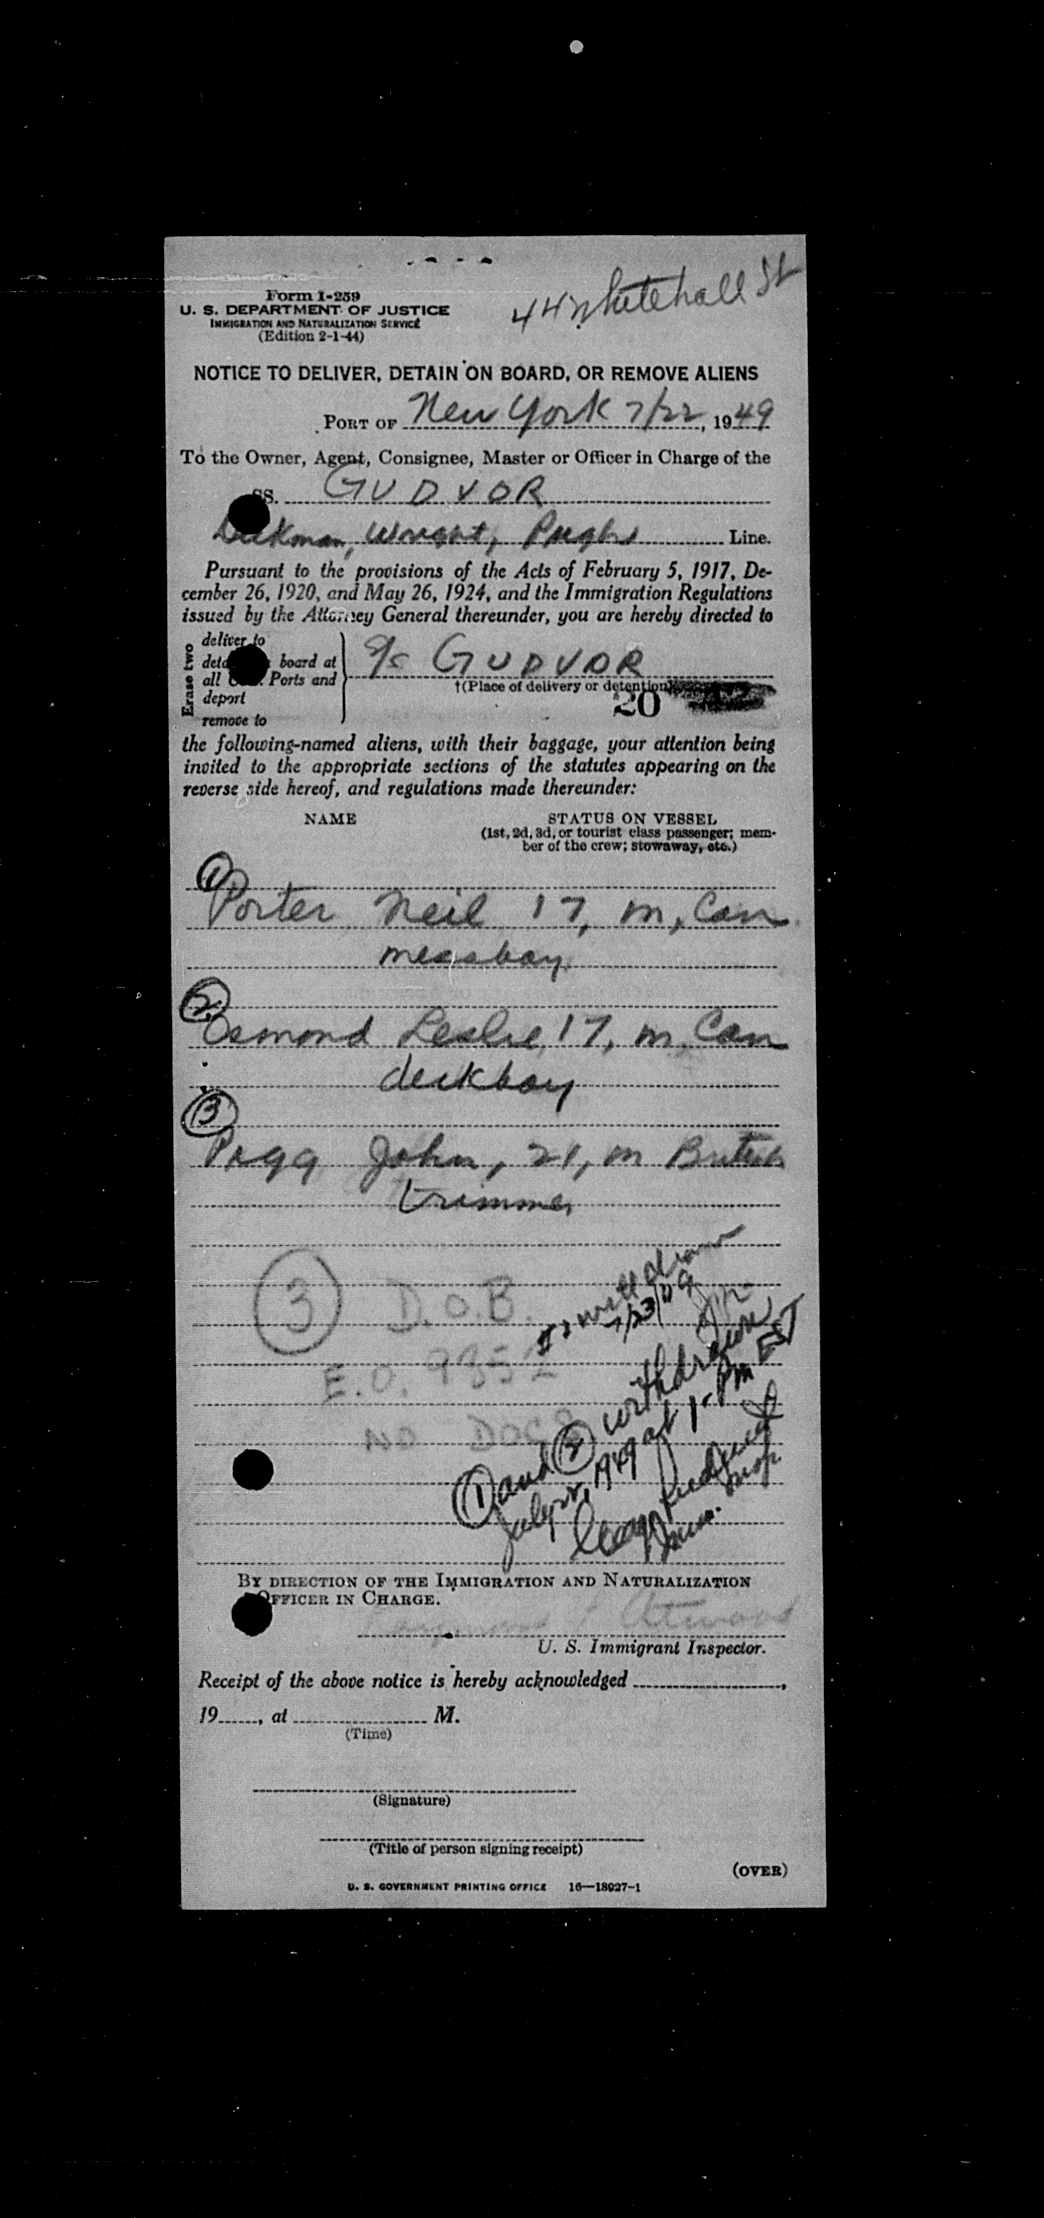 44 Whitehall St
Form I-259
U. S. DEPARTMENT OF JUSTICE
IMMIGRATION AND NATURALIZATION SERVICE
(Edition 2-1-44)
NOTICE TO DELIVER, DETAIN ON BOARD, OR REMOVE ALIENS
PORT OF New York 7/22, 1949
To the Owner, Agent, Consignee, Master or Officer in Charge of the
SS. GUDVOR
Wright, Pughs Line.
Pursuant to the provisions of the Acts of February 5, 1917, De-
cember 26, 1920, and May 26, 1924, and the Immigration Regulations
issued by the Attorney General thereunder, you are hereby directed to
Erase two
deliver to
board at
all Ports and
deport
remove to
S/S GUDVOR
†(Place of delivery or detention)
20
the following-named aliens, with their baggage, your attention being
invited to the appropriate sections of the statutes appearing on the
reverse side hereof, and regulations made thereunder:
NAME STATUS ON VESSEL
(1st, 2d, 3d, or tourist class passenger; mem-
ber of the crew; stowaway, etc.)
1
Porter Neil 17, m, Can
messboy
2
Esmond Leslie, 17, m, Can
deckboy
3
Pigg John, 21, m British
trimmer
3 D.O.B.
E.O. 9352
NO DOCS
withdrawn
7/23/49
1 and 2 withdrawn
July 22, 1949 at 1- PM EST
BY DIRECTION OF THE IMMIGRATION AND NATURALIZATION
OFFICER IN CHARGE.
Atwood
U. S. Immigrant Inspector.
Receipt of the above notice is hereby acknowledged ,
19 , at M.
(Time)
(Signature)
(Title of person signing receipt)
(OVER)
U. S. GOVERNMENT PRINTING OFFICE 16—18027-1